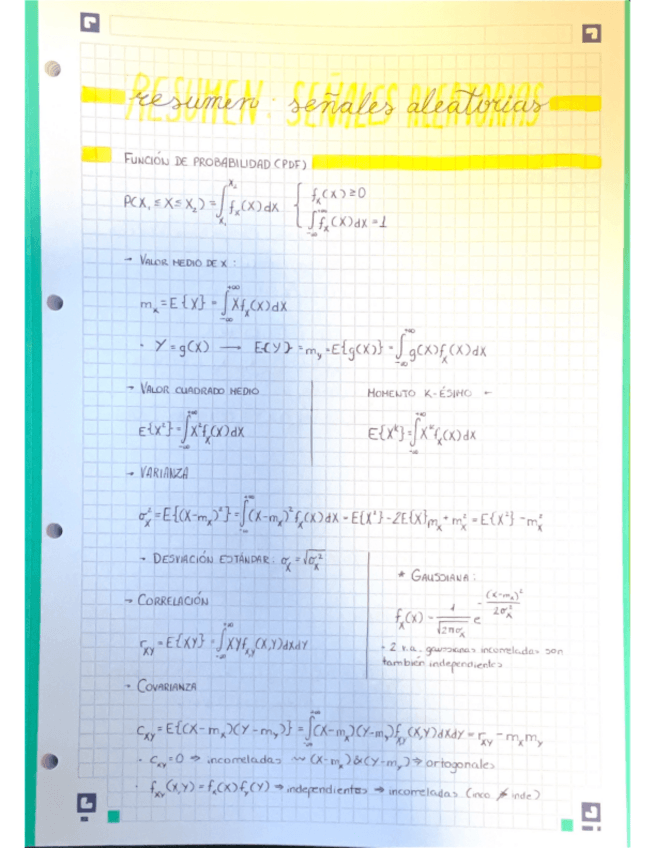 RESUMEN: SEÑALES ALEATORIAS
resumen: señales aleatorias
FUNCIÓN DE PROBABILIDAD (PDF)
P(X₁ ≤ X ≤ X₂) = ∫_{X₁}^{X₂} f_X(X)dX { f_X(X) ≥ 0
∫_{-∞}^{+∞} f_X(X)dX = 1
→ VALOR MEDIO DE X:
m_x = E{X} = ∫_{-∞}^{+∞} X f_X(X)dX
· Y = g(X) → E{Y} = m_y = E{g(X)} = ∫_{-∞}^{+∞} g(X) f_X(X)dX
→ VALOR CUADRADO MEDIO
E{X²} = ∫_{-∞}^{+∞} X² f_X(X)dX
MOMENTO K-ÉSIMO ←
E{X^k} = ∫_{-∞}^{+∞} X^k f_X(X)dX
→ VARIANZA
σ_X² = E{(X-m_x)²} = ∫_{-∞}^{+∞} (X-m_x)² f_X(X)dX = E{X²} - 2E{X}m_x + m_x² = E{X²} - m_x²
→ DESVIACIÓN ESTÁNDAR: σ_X = √σ_X²
→ CORRELACIÓN
r_XY = E{XY} = ∫_{-∞}^{+∞} XY f_XY(X,Y)dXdY
* GAUSSIANA:
f_X(X) = 1/√(2πσ_X) e^{-(X-m_x)²/2σ_X²}
· 2 v.a. gaussianas incorreladas son
también independientes
→ COVARIANZA
C_XY = E{(X-m_x)(Y-m_y)} = ∫_{-∞}^{+∞} (X-m_x)(Y-m_y) f_XY(X,Y)dXdY = r_XY - m_x m_y
· C_XY = 0 ⇒ incorreladas ⇝ (X-m_x)&(Y-m_y) ⇒ ortogonales
· f_XY(X,Y) = f_X(X) f_Y(Y) ⇒ independientes ⇒ incorreladas (inco ⇏ inde)